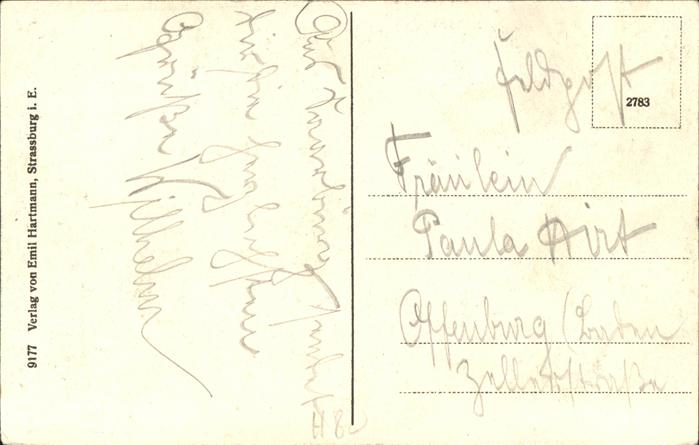 9177 Verlag von Emil Hartmann, Strassburg i. E.
Aus
die herzlichsten
Grüße Wilhelm
Feldpost
2783
Fräulein
Paula Hirt
Offenburg (Baden
Zellerstraße